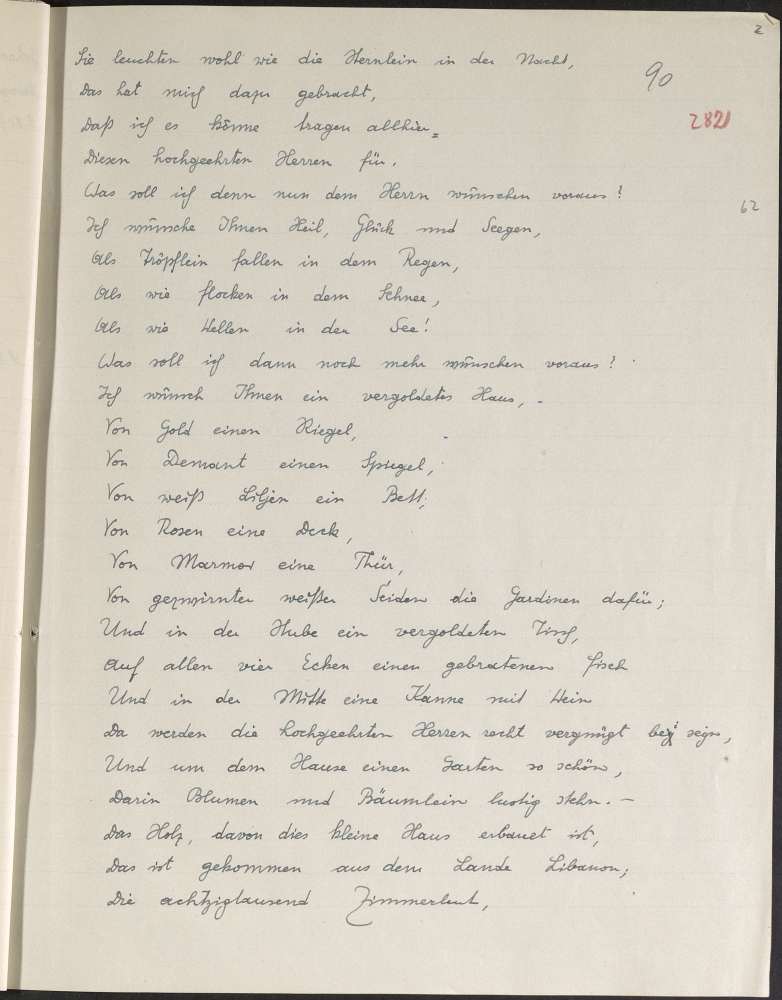 2
90
2821
62
Sie leuchten wohl wie die Sternlein in der Nacht,
Das hat mich dazu gebracht,
Daß ich es könne tragen allhier
Diesen hochgeehrten Herren für.
Was soll ich denn nun dem Herrn wünschen voraus?
Ich wünsche Ihnen Heil, Glück und Seegen,
Als Tröpflein fallen in dem Regen,
Als wie flocken in dem Schnee,
Als wie Wellen in der See!
Was soll ich dann noch mehr wünschen voraus?
Ich wünsch Ihnen ein vergoldetes Haus,
Von Gold einen Riegel,
Von Demant einen Spiegel,
Von weiß Liljen ein Bett,
Von Rosen eine Deck,
Von Marmor eine Thür,
Von gezwirnter weißer Seiden die Gardinen dafür;
Und in der Stube ein vergoldeten Tisch,
Auf allen vier Ecken einen gebratenen fisch
Und in der Mitte eine Kanne mit Wein
Da werden die hochgeehrten Herren recht vergnügt bey seyn,
Und um dem Hause einen Garten so schön,
Darin Blumen und Bäumlein lustig stehn. –
Das Holz, davon dies kleine Haus erbauet ist,
Das ist gekommen aus dem Lande Libanon;
Die achtzigtausend Zimmerleut,